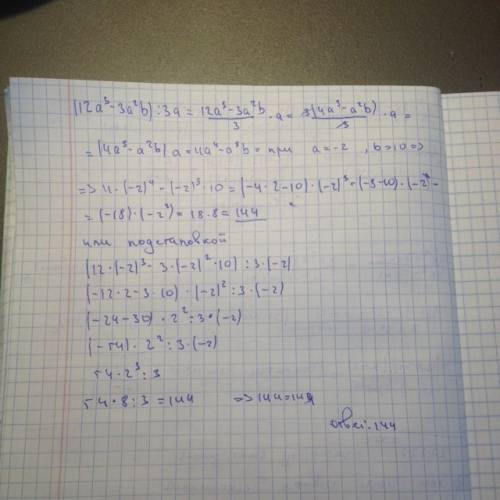 (12a³-3a²b):3a = 12a³-3a²b/3 · a = 3(4a³-a²b)/3 · a =
= (4a³-a²b)a = 4a⁴-a³b = при a=-2 , b=10 =>
=> 4·(-2)⁴-(-2)³·10 = (-4·2-10)·(-2)³ = (-8-10)·(-2³) =
= (-18)·(-2³) = 18·8 = 144
или подстановкой
(12·(-2)³-3·(-2)²·10):3·(-2)
(-12·2-3·10)·(-2)²:3·(-2)
(-24-30)·2²:3·(-2)
(-54)·2²:3·(-2)
54·2³:3
54·8:3=144 => 144=144
ответ: 144